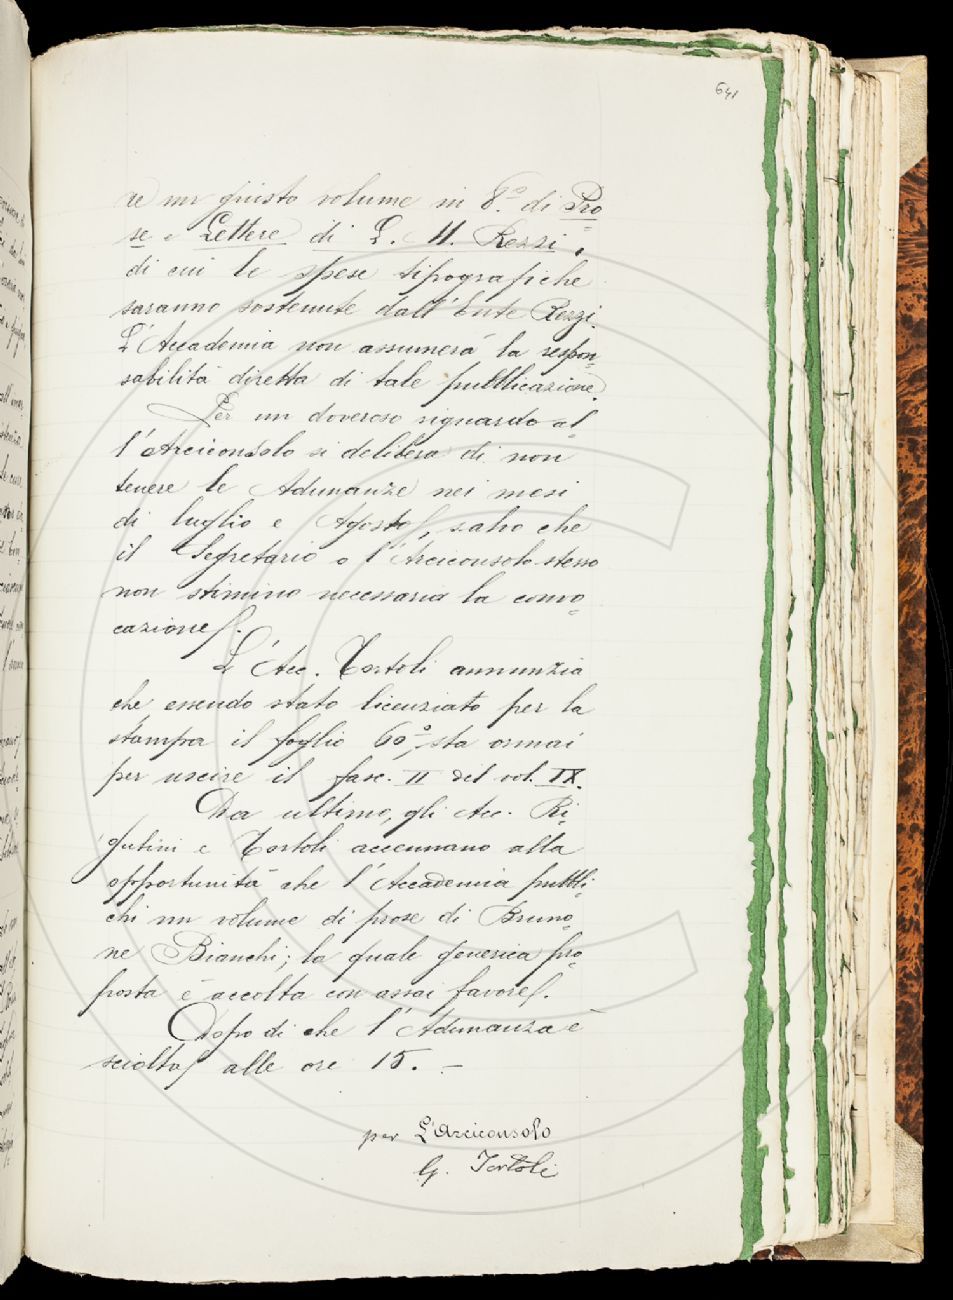 641
re un giusto volume in 8.º di Pro=
se e Lettere di L. M. Rezzi,
di cui le spese tipografiche
saranno sostenute dall'Ente Rezzi.
L'Accademia non assumerà la respon=
sabilità diretta di tale pubblicazione.
Per un doveroso riguardo al=
l'Arciconsolo si delibera di non
tenere le Adunanze nei mesi
di luglio e Agosto, salvo che
il Segretario o l'Arciconsolo stesso
non stimino necessaria la convo=
cazione.
L'Acc. Tortoli annunzia
che essendo stato licenziato per la
stampa il foglio 60º, sta ormai
per uscire il fasc. II del vol. IX.
Da ultimo, gli Acc. Ri=
gutini e Tortoli accennano alla
opportunità che l'Accademia pubbli=
chi un volume di prose di Bruno=
ne Bianchi; la quale generica pro=
posta è accolta con assai favore.
Dopo di che l'Adunanza è
sciolta alle ore 15. —
per L'Arciconsolo
G. Tortoli